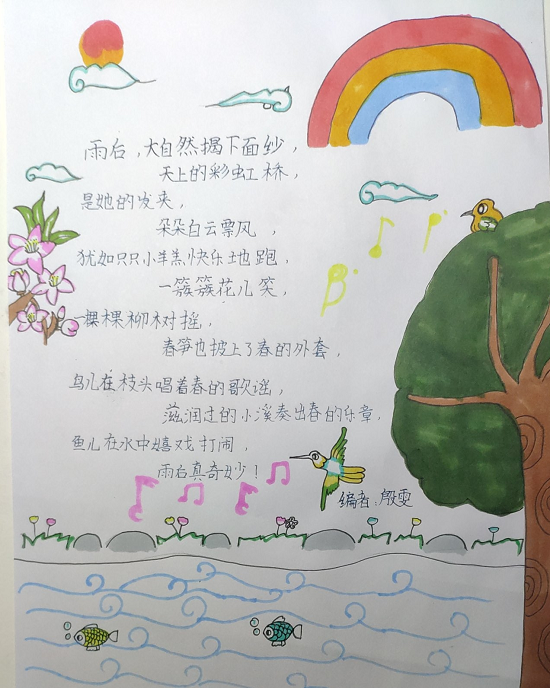 雨后，大自然揭下面纱，
天上的彩虹桥，
是她的发夹，
朵朵白云飘风，
犹如只只小羊羔快乐地跑，
一簇簇花儿笑，
一棵棵柳树摇，
春笋也披上了春的外套，
鸟儿在枝头唱着春的歌谣，
滋润过的小溪奏出春的乐章，
鱼儿在水中嬉戏打闹，
雨后真奇妙！
编者：殷雯